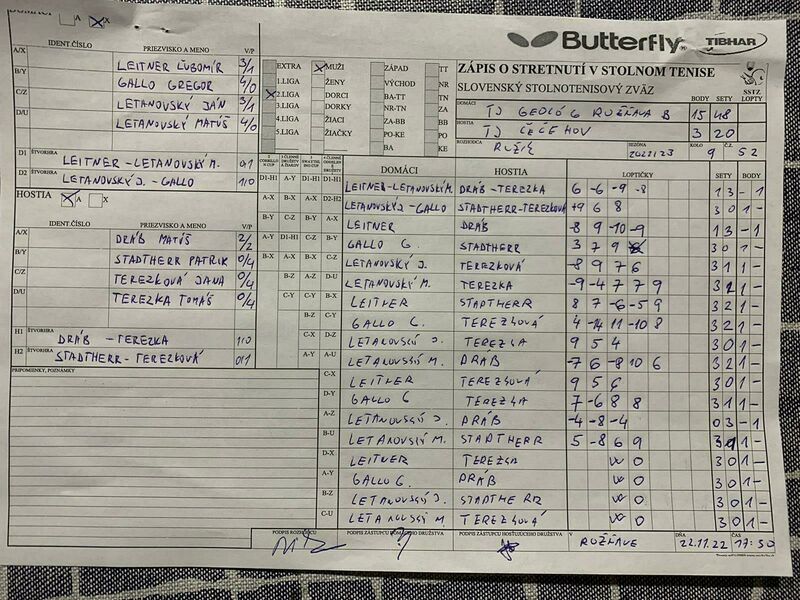 DOMÁCI A X
IDENT.ČÍSLO PRIEZVISKO A MENO V/P
A/X LEITNER ĽUBOMÍR 3/1
B/Y GALLO GREGOR 4/0
C/Z LETANOVSKÝ JÁN 3/1
D/U LETANOVSKÝ MATÚŠ 4/0
D1 ŠTVORHRA LEITNER-LETANOVSKÝ M. 0/1
D2 ŠTVORHRA LETANOVSKÝ J. - GALLO 1/0
HOSTIA A X
IDENT.ČÍSLO PRIEZVISKO A MENO V/P
A/X DRÁB MATÚŠ 2/2
B/Y STADTHERR PATRIK 0/4
C/Z TEREZKOVÁ JANA 0/4
D/U TEREZKA TOMÁŠ 0/4
H1 ŠTVORHRA DRÁB - TEREZKA 1/0
H2 ŠTVORHRA STADTHERR-TEREZKOVÁ 0/1
PRIPOMIENKY, POZNÁMKY
Butterfly TIBHAR
EXTRA MUŽI ZÁPAD TT
1.LIGA ŽENY VÝCHOD NR
2.LIGA DORCI BA-TT TN
3.LIGA DORKY NR-TN ZA
4.LIGA ŽIACI ZA-BB BB
5.LIGA ŽIAČKY PO-KE PO
BA KE
ZÁPIS O STRETNUTÍ V STOLNOM TENISE
SLOVENSKÝ STOLNOTENISOVÝ ZVÄZ SSTZ
BODY SETY LOPTY
DOMÁCI TJ GEOLÓG ROŽŇAVA B 15 48
HOSTIA TJ ČEČEHOV 3 20
ROZHODCA RUŽIČ SEZÓNA 2022/23 KOLO 9 Č.Z. 52
DOMÁCI HOSTIA LOPTIČKY SETY BODY
LEITNER-LETANOVSKÝ M. DRÁB-TEREZKA 6 -6 -9 -8 1 3 - 1
LETANOVSKÝ J. - GALLO STADTHERR-TEREZKOVÁ +9 6 8 3 0 1 -
LEITNER DRÁB -8 9 -10 -9 1 3 - 1
GALLO G. STADTHERR 3 7 9 3 0 1 -
LETANOVSKÝ J. TEREZKOVÁ -8 9 7 6 3 1 1 -
LETANOVSKÝ M. TEREZKA -9 -4 7 7 9 3 2 1 -
LEITNER STADTHERR 8 7 -6 -5 9 3 2 1 -
GALLO G. TEREZKOVÁ 4 -14 11 -10 8 3 2 1 -
LETANOVSKÝ J. TEREZKA 9 5 4 3 0 1 -
LETANOVSKÝ M. DRÁB -7 6 -8 10 6 3 2 1 -
LEITNER TEREZKOVÁ 9 5 6 3 0 1 -
GALLO G TEREZKA 7 -6 8 8 3 1 1 -
LETANOVSKÝ J. DRÁB -4 -8 -4 0 3 - 1
LETANOVSKÝ M. STADTHERR 5 -8 6 9 3 1 1 -
LEITNER TEREZKA W O 3 0 1 -
GALLO G. DRÁB W O 3 0 1 -
LETANOVSKÝ J. STADTHERR W O 3 0 1 -
LETANOVSKÝ M TEREZKOVÁ W O 3 0 1 -
PODPIS ROZHODCU PODPIS ZÁSTUPCU DOMÁCEHO DRUŽSTVA PODPIS ZÁSTUPCU HOSŤUJÚCEHO DRUŽSTVA V ROŽŇAVE DŇA 22.11.22 ČAS 17:50